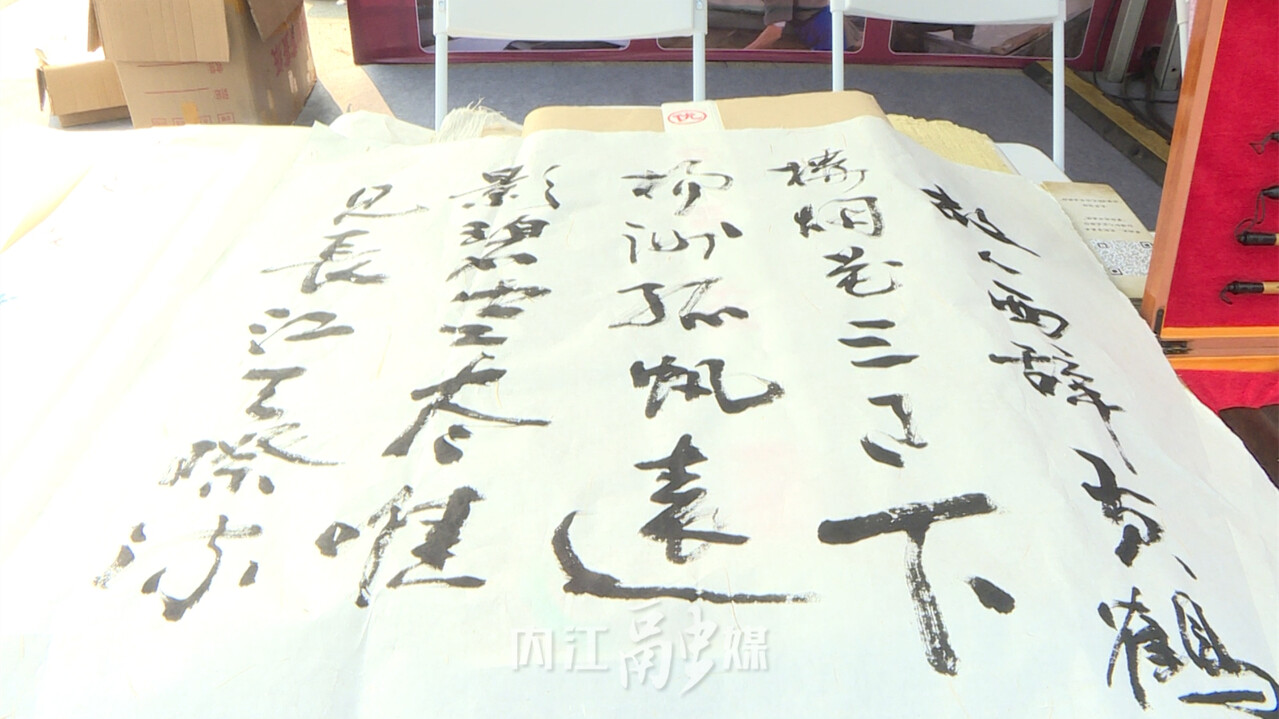 故人西辞黄鶴
楼烟花三月下
揚州孤帆遠
影碧空尽唯
见長江天際流
内江融媒